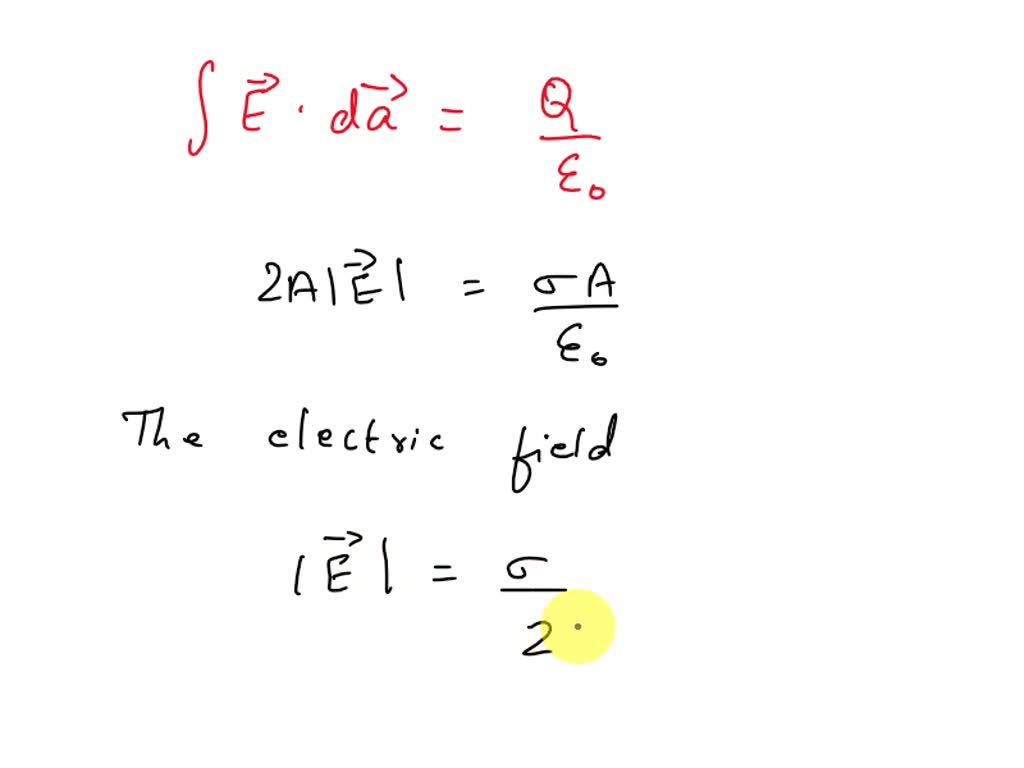 ∫ E⃗ · da⃗ = Q/ε₀
2A|E⃗| = σA/ε₀
The electric field
|E⃗| = σ/2